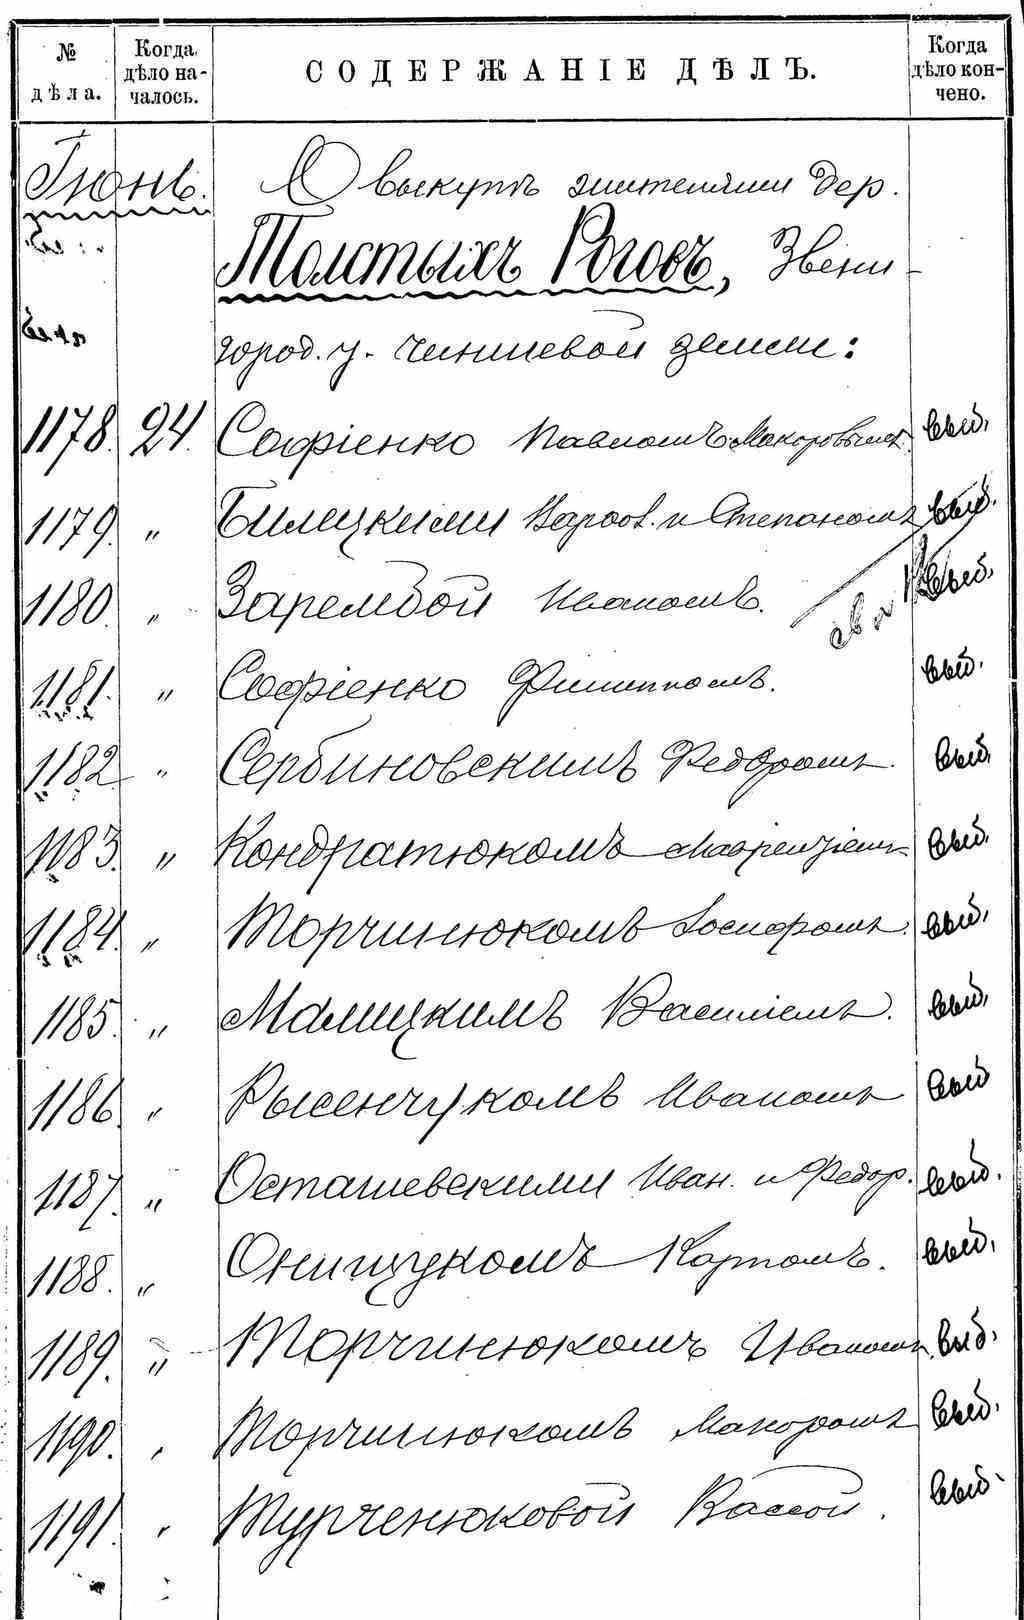 № дѣла.
Когда дѣло началось.
СОДЕРЖАНІЕ ДѢЛЪ.
Когда дѣло кончено.
Іюнь. О выкупѣ жителями дер.
Толстыхъ Роговъ, Звени-
город. у. чиншевой земли:
1178. 24. Софіенко Павломъ Макаровымъ. выб.
1179. " Билецкими Карпов. и Степаномъ выб.
1180. " Зарембой Иваномъ. выб.
1181. " Софіенко Филиппомъ. выб.
1182 " Сербиновскимъ Федоромъ. выб.
1183. " Кондратюкомъ Лаврентіемъ выб.
1184. " Торчинюкомъ Іосифомъ. выб.
1185. " Малицкимъ Василіемъ. выб.
1186 " Рысенчукомъ Иваномъ выб
1187. " Осташевскими Иван. и Федор. выб.
1188. " Онищукомъ Карпомъ. выб.
1189. " Торчинюкомъ Иваномъ. выб.
1190. " Торчинюкомъ Макаромъ выб.
1191. " Турченюковой Вассой. выб